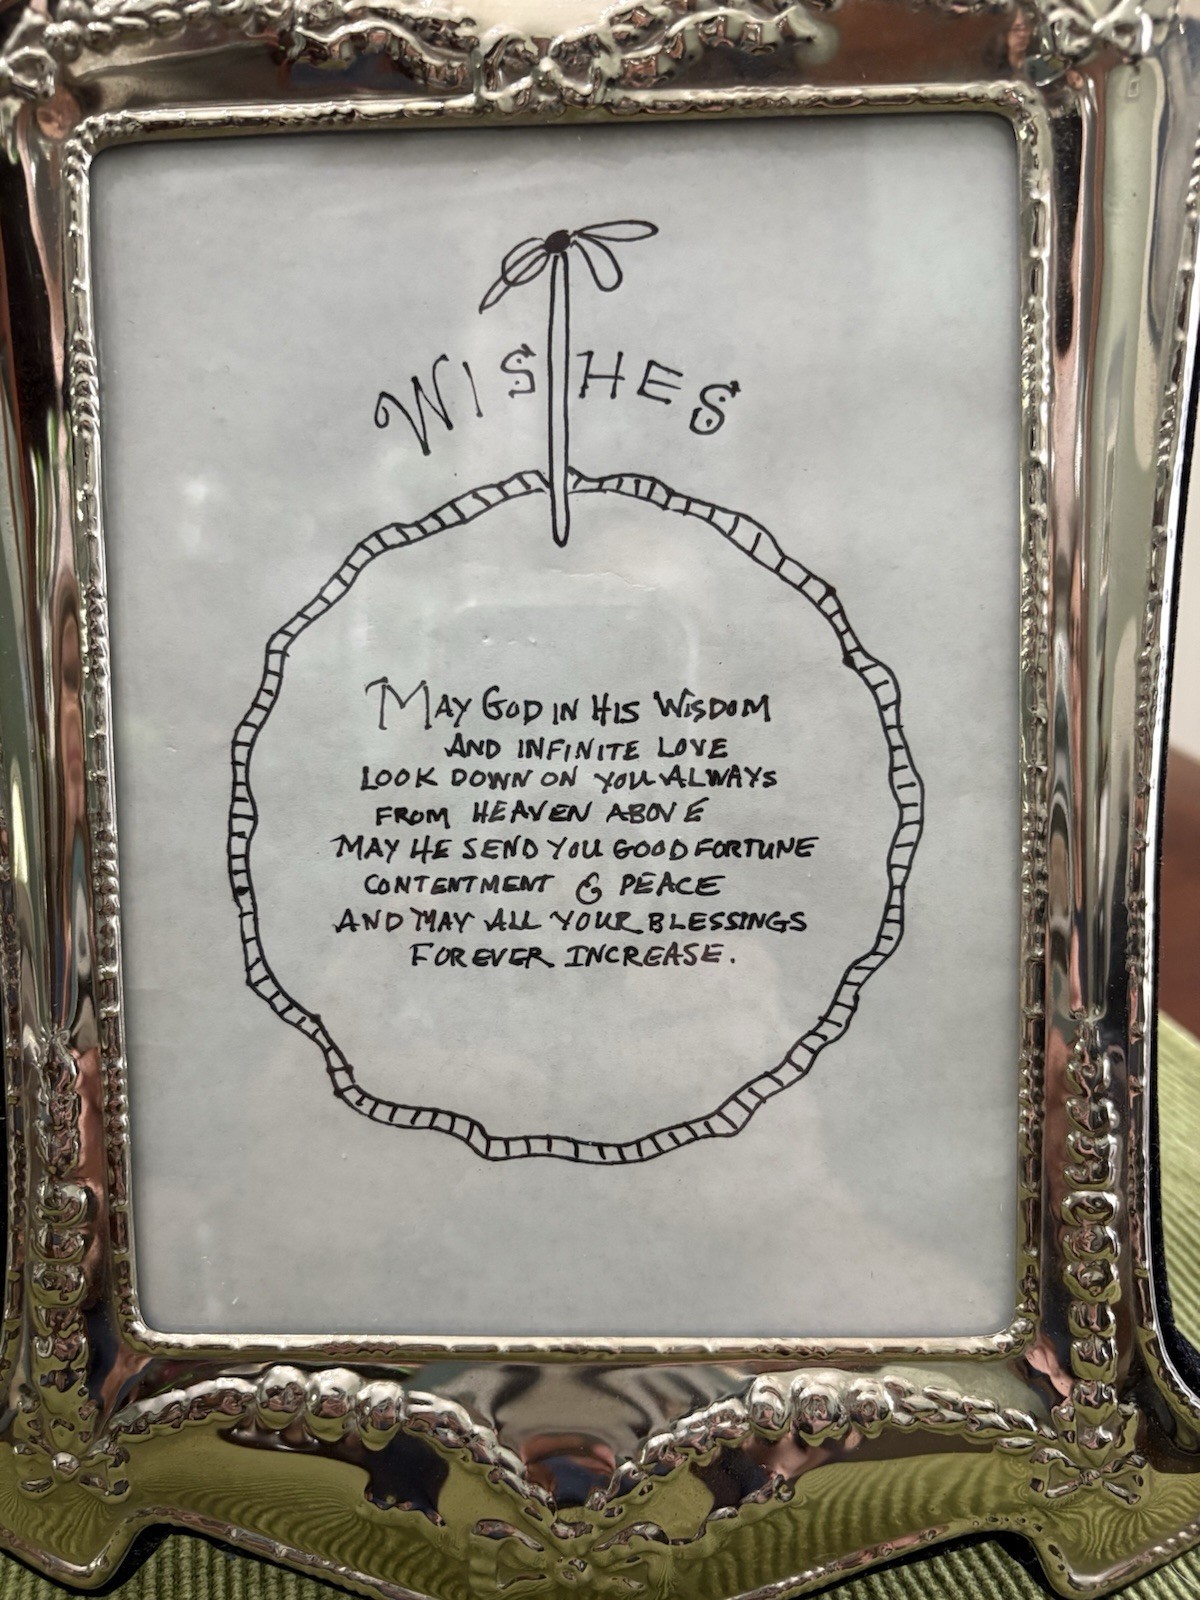 WISHES
MAY GOD IN HIS WISDOM
AND INFINITE LOVE
LOOK DOWN ON YOU ALWAYS
FROM HEAVEN ABOVE
MAY HE SEND YOU GOOD FORTUNE
CONTENTMENT & PEACE
AND MAY ALL YOUR BLESSINGS
FOREVER INCREASE.